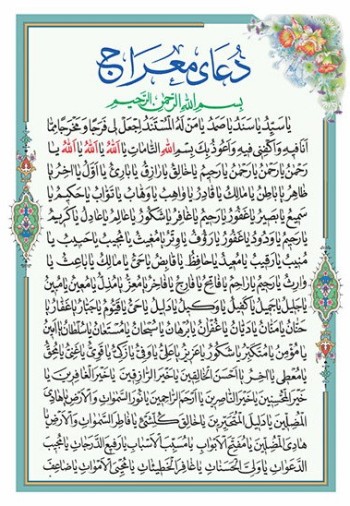 دُعای معراج
بِسْمِ اللهِ الرَّحْمٰنِ الرَّحیمِ
یا سَیِّدُ یا سَنَدُ یا صَمَدُ یا مَنْ لَهُ الْمُسْتَنَدُ اِجْعَلْ لی فَرَجًا وَ مَخْرَجًا مِمّا
اَنَا فیهِ وَ اکْفِنی فیهِ وَ اَعُوذُ بِکَ بِسْمِ اللهِ التّامّاتِ یا اَللهُ یا اَللهُ یا اَللهُ یا
رَحْمٰنُ یا رَحْمٰنُ یا رَحْمٰنُ یا رَحیمُ یا خالِقُ یا رازِقُ یا بارِئُ یا اَوَّلُ یا اٰخِرُ یا
ظاهِرُ یا باطِنُ یا مالِکُ یا قادِرُ یا واهِبُ یا وَهّابُ یا تَوّابُ یا حَکیمُ یا
سَمیعُ یا بَصیرُ یا غَفُورُ یا رَحیمُ یا غافِرُ یا شَکُورُ یا عالِمُ یا عادِلُ یا کَریمُ
یا رَحیمُ یا وَدُودُ یا غَفُورُ یا رَؤُفُ یا وِتْرُ یا مُغیثُ یا مُجیبُ یا حَبیبُ یا
مُنیبُ یا رَقیبُ یا مُعیدُ یا حافِظُ یا قابِضُ یا حَیُّ یا مالِکُ یا باعِثُ یا
وارِثُ یا رَحیمُ یا راحِمُ یا فاتِحُ یا فارِجُ یا فاخِرُ یا مُعِزُّ یا مُذِلُّ یا مُعینُ یا مُبینُ
یا جَلیلُ یا جَمیلُ یا کَفیلُ یا وَکیلُ یا دَلیلُ یا حَیُّ یا قَیُّومُ یا جَبّارُ یا غَفّارُ یا
حَنّانُ یا مَنّانُ یا دَیّانُ یا غُفْرانُ یا بُرْهانُ یا سُبْحانُ یا مُسْتَعانُ یا سُلْطانُ یا اَمینُ
یا مُؤْمِنُ یا مُتَکَبِّرُ یا شَکُورُ یا عَزیزُ یا عَلِیُّ یا وَفِیُّ یا زَکِیُّ یا قَوِیُّ یا غَنِیُّ یا مُحِقُّ
یا مُعْطی یا اٰخِرُ یا اَحْسَنَ الْخالِقینَ یا خَیْرَ الرّازِقینَ یا خَیْرَ الْغافِرینَ یا
خَیْرَ الْمُحْسِنینَ یا خَیْرَ النّاصِرینَ یا اَرْحَمَ الرّاحِمینَ یا نُورَ السَّمٰواتِ وَ الْاَرْضِ یا هادِیَ
الْمُضِلّینَ یا دَلیلَ الْمُتَحَیِّرینَ یا خالِقَ کُلِّ شَیْءٍ یا فاطِرَ السَّمٰواتِ وَ الْاَرْضِ یا
هادِیَ الْمُضِلّینَ یا مُفَتِّحَ الْاَبْوابِ یا مُسَبِّبَ الْاَسْبابِ یا رَفیعَ الدَّرَجاتِ یا مُجیبَ
الدَّعَواتِ یا وَلِیَّ الْحَسَناتِ یا غافِرَ الْخَطیئاتِ یا مُحْیِیَ الْاَمْواتِ یا ضاعِفَ